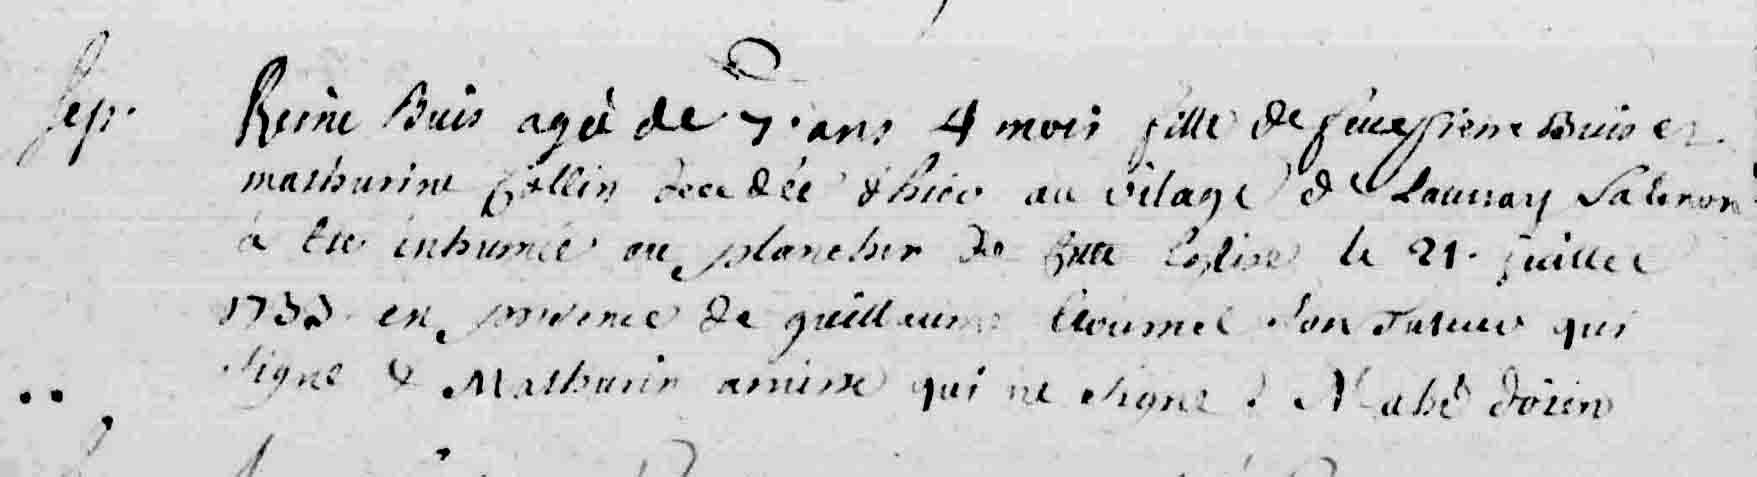 Sep. Reine Buis agée de 7. ans 4 mois fille de feue Pierre Buis et
mathurine Collin decedée d'hier au vilage de Launay Salmon
a été inhumée au plancher de cette Eglise le 21. juillet
1733 en presence de guillaume son Tuteur qui
signe & Mathurin qui ne signe. N abé doien